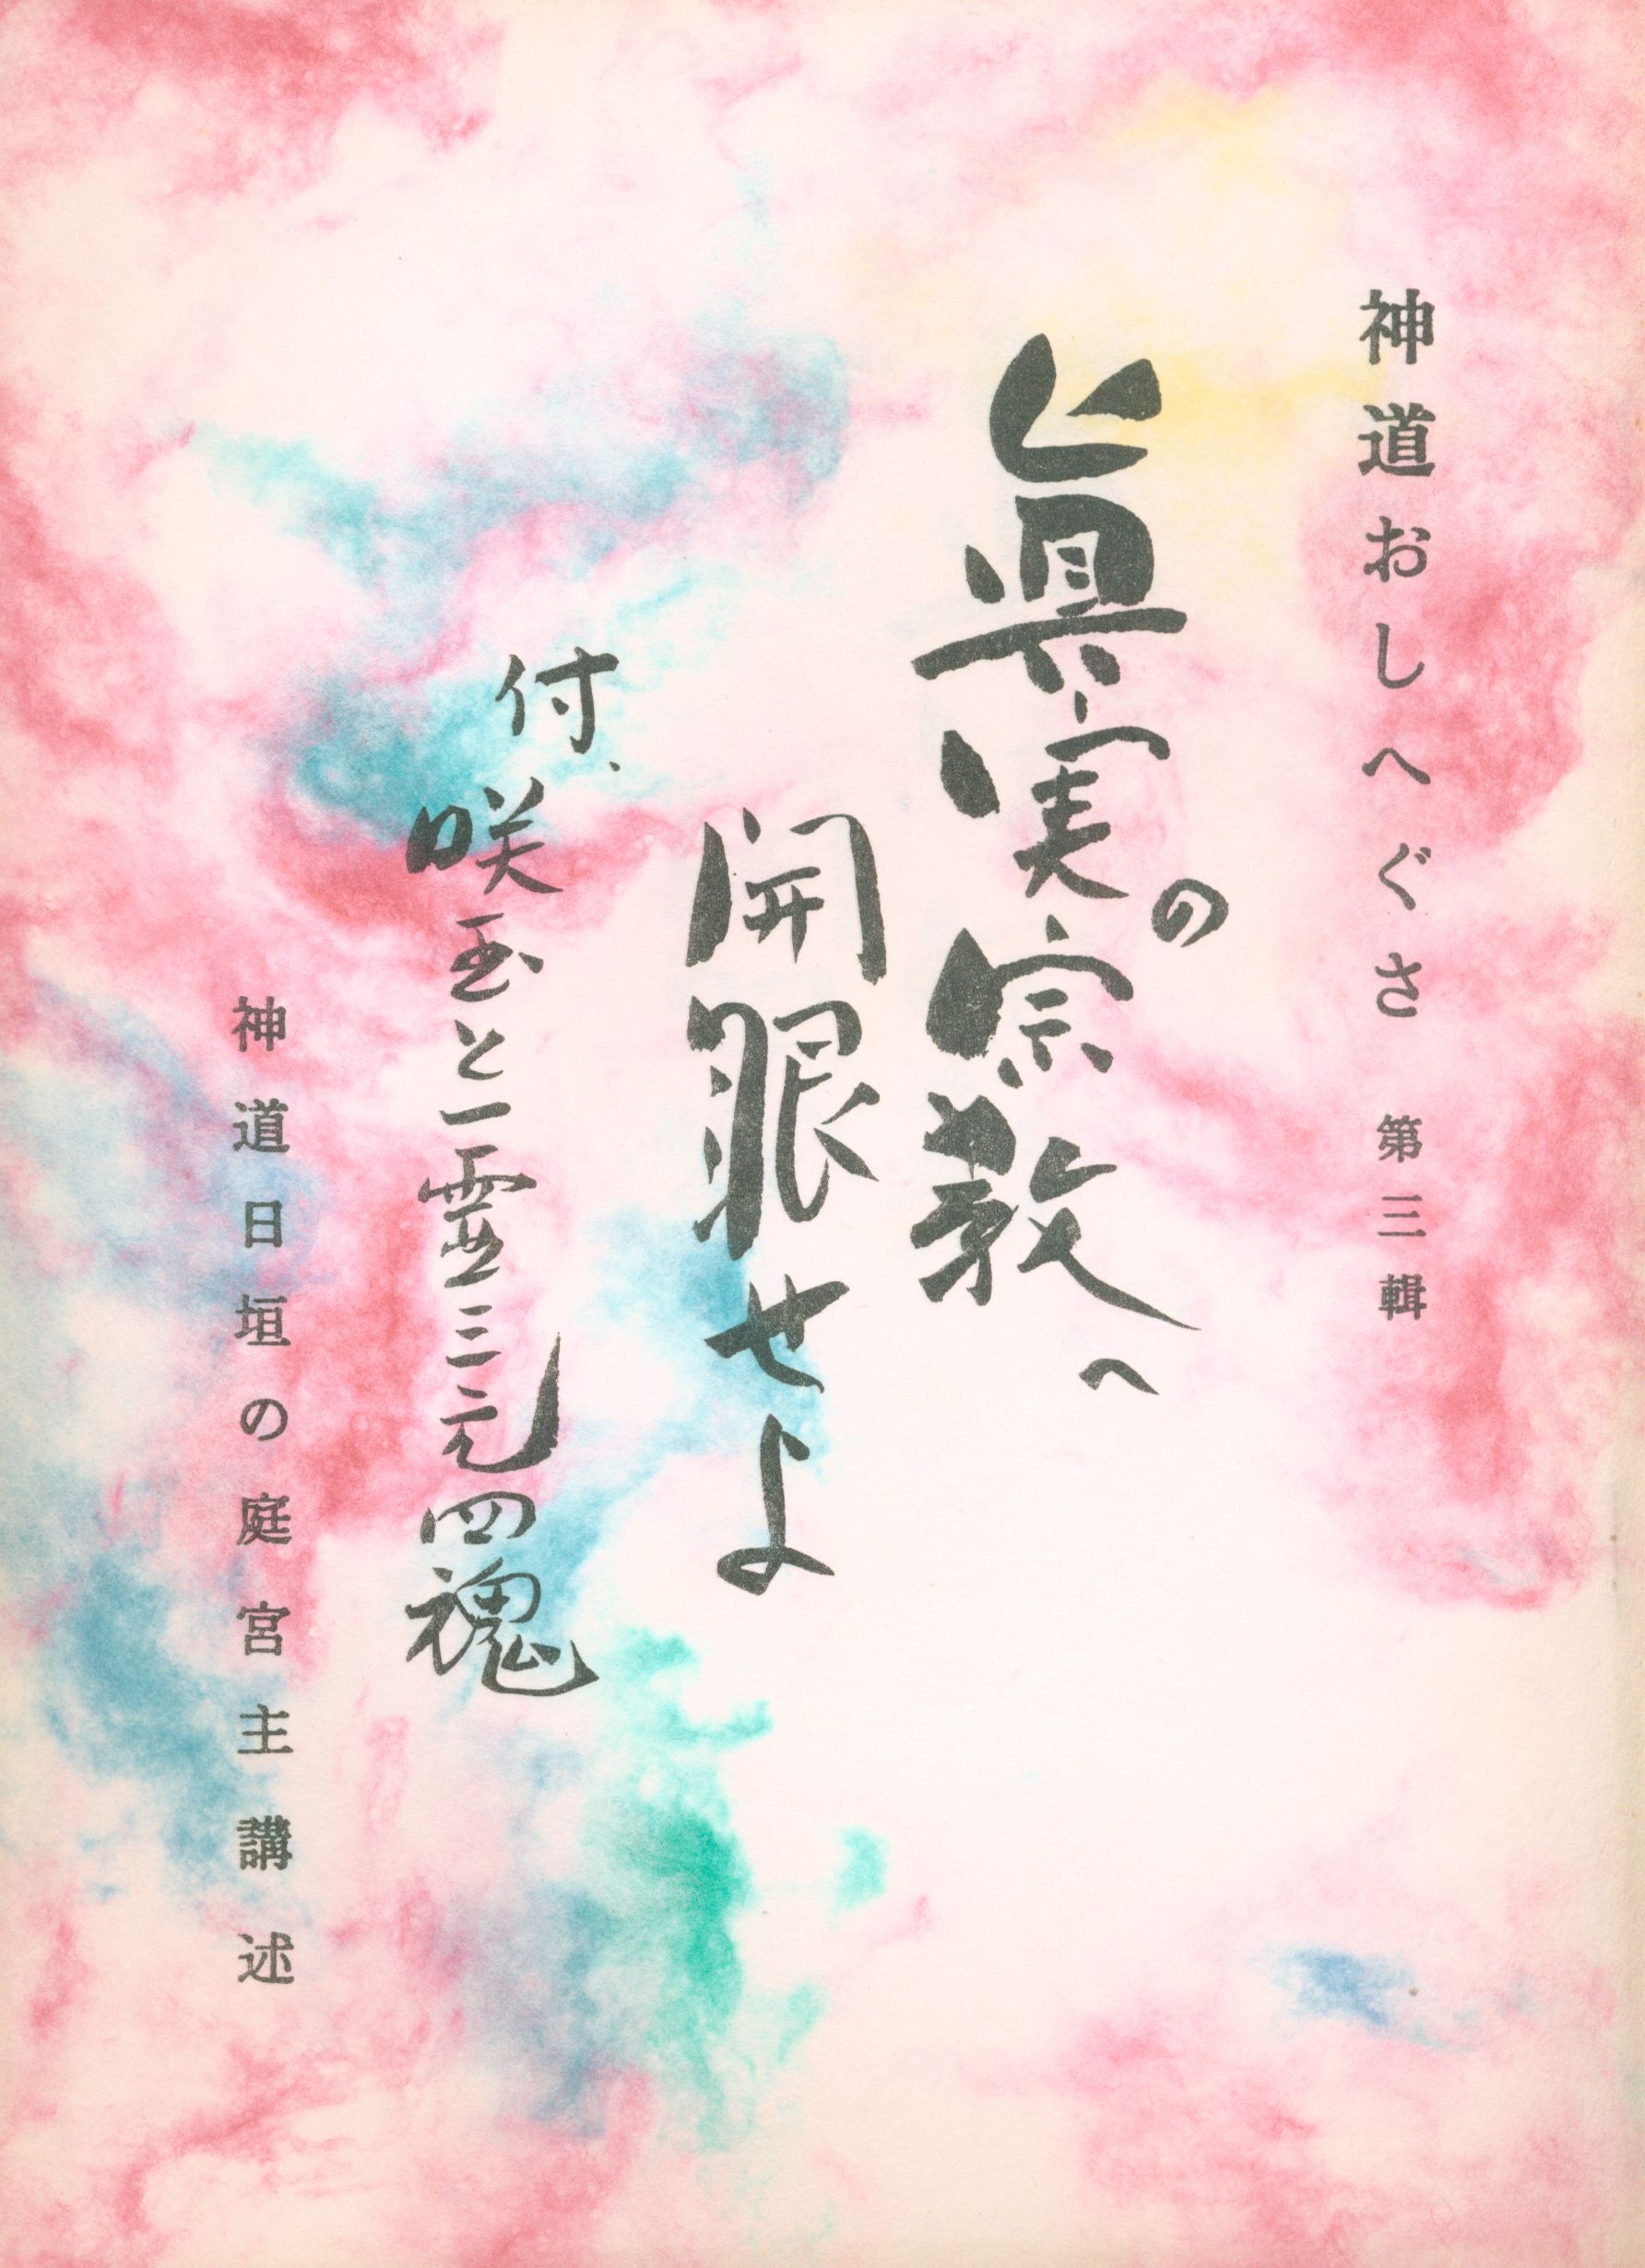 神道おしへぐさ 第三輯
眞実の宗教へ
開眼せよ
付、咲玉と一霊三元四魂
神道日垣の庭宮主講述